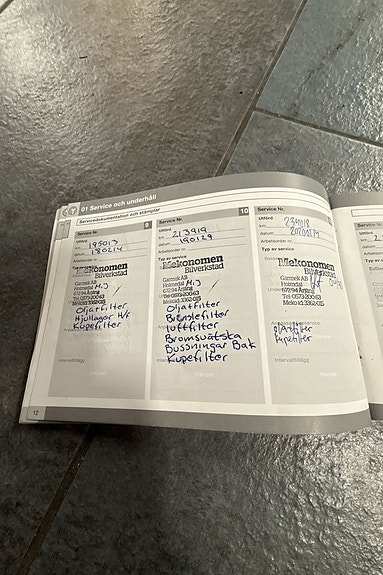 01 Service och underhåll
Servicedokumentation och stämplar
Service Nr. 9
Utförd
km 195013
datum 180214
Arbetsorder nr.
Typ av service
Mekonomen
Bilverkstad
Garmek AB
Holmedal
672 94 Årjäng
Tel: 0573-200 63
Meko id: 3362-015
Oljefilter
Hjullager H/f
Kupefilter
Intervalltillägg
Service Nr. 10
Utförd
km 213919
datum 190129
Arbetsorder nr.
Typ av service
Mekonomen
Bilverkstad
Garmek AB
Holmedal
672 94 Årjäng
Tel: 0573-200 63
Meko id: 3362-015
Oljefilter
Bränslefilter
luftfilter
Bromsvätska
Bussningar Bak
Kupefilter
Service Nr.
Utförd
km
datum
Arbetsorder nr.
Typ av service
Mekonomen
Bilverkstad
Garmek AB
Holmedal
672 94 Årjäng
Tel: 0573-200 63
Meko id: 3362-015
Intervalltillägg
Service Nr.
Utförd
km
datum
12